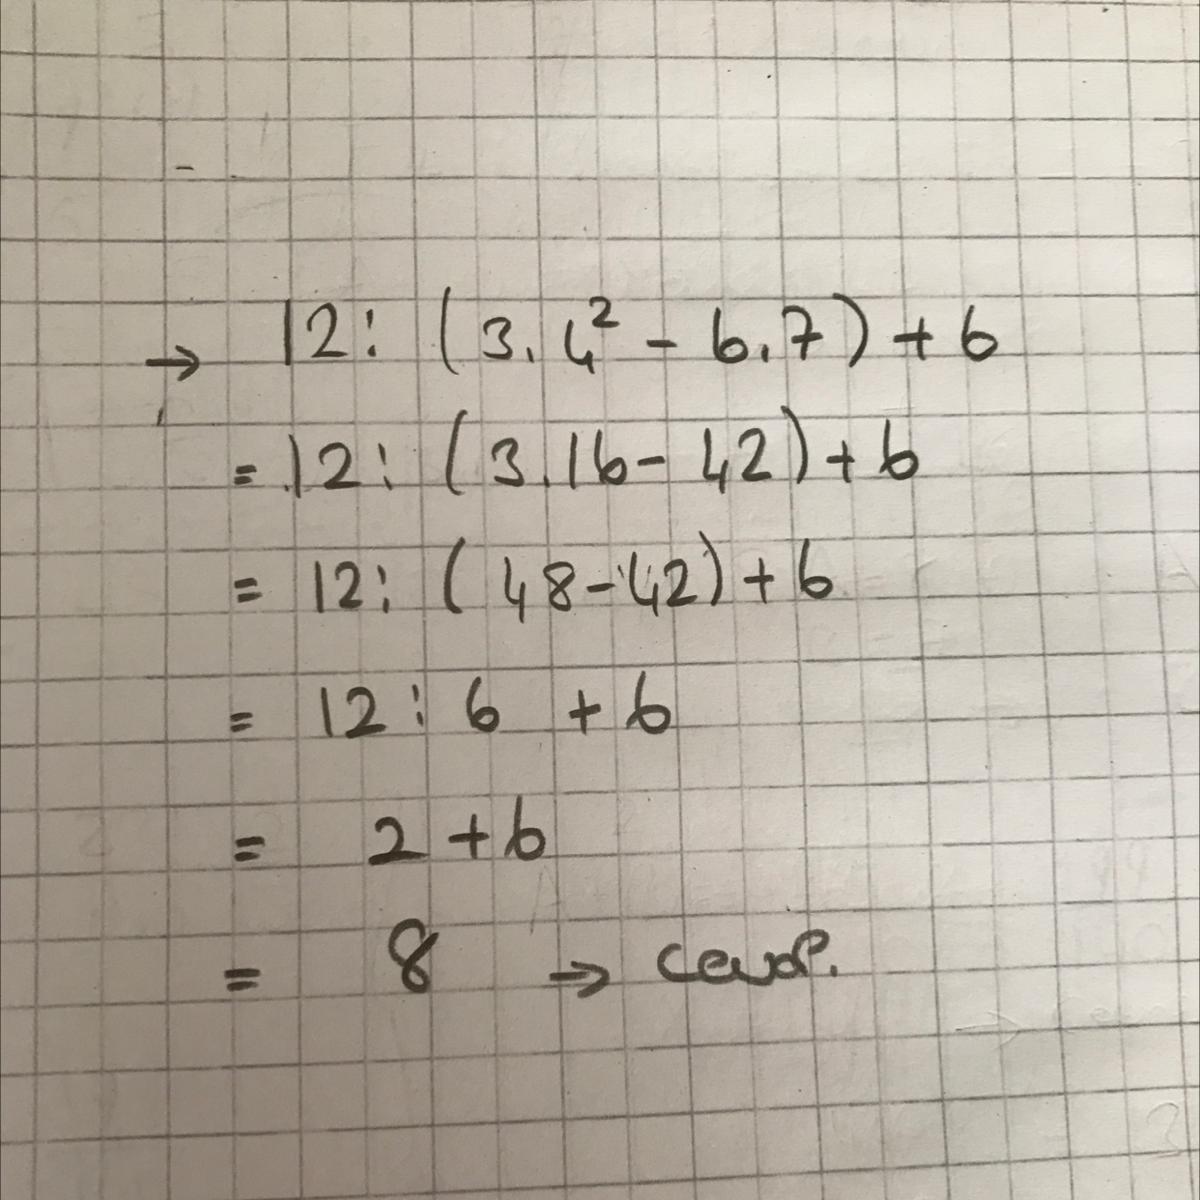 → 12 : (3.4² - 6.7) + 6
= 12 : (3.16 - 42) + 6
= 12 : (48 - 42) + 6
= 12 : 6 + 6
= 2 + 6
= 8 → cevap.